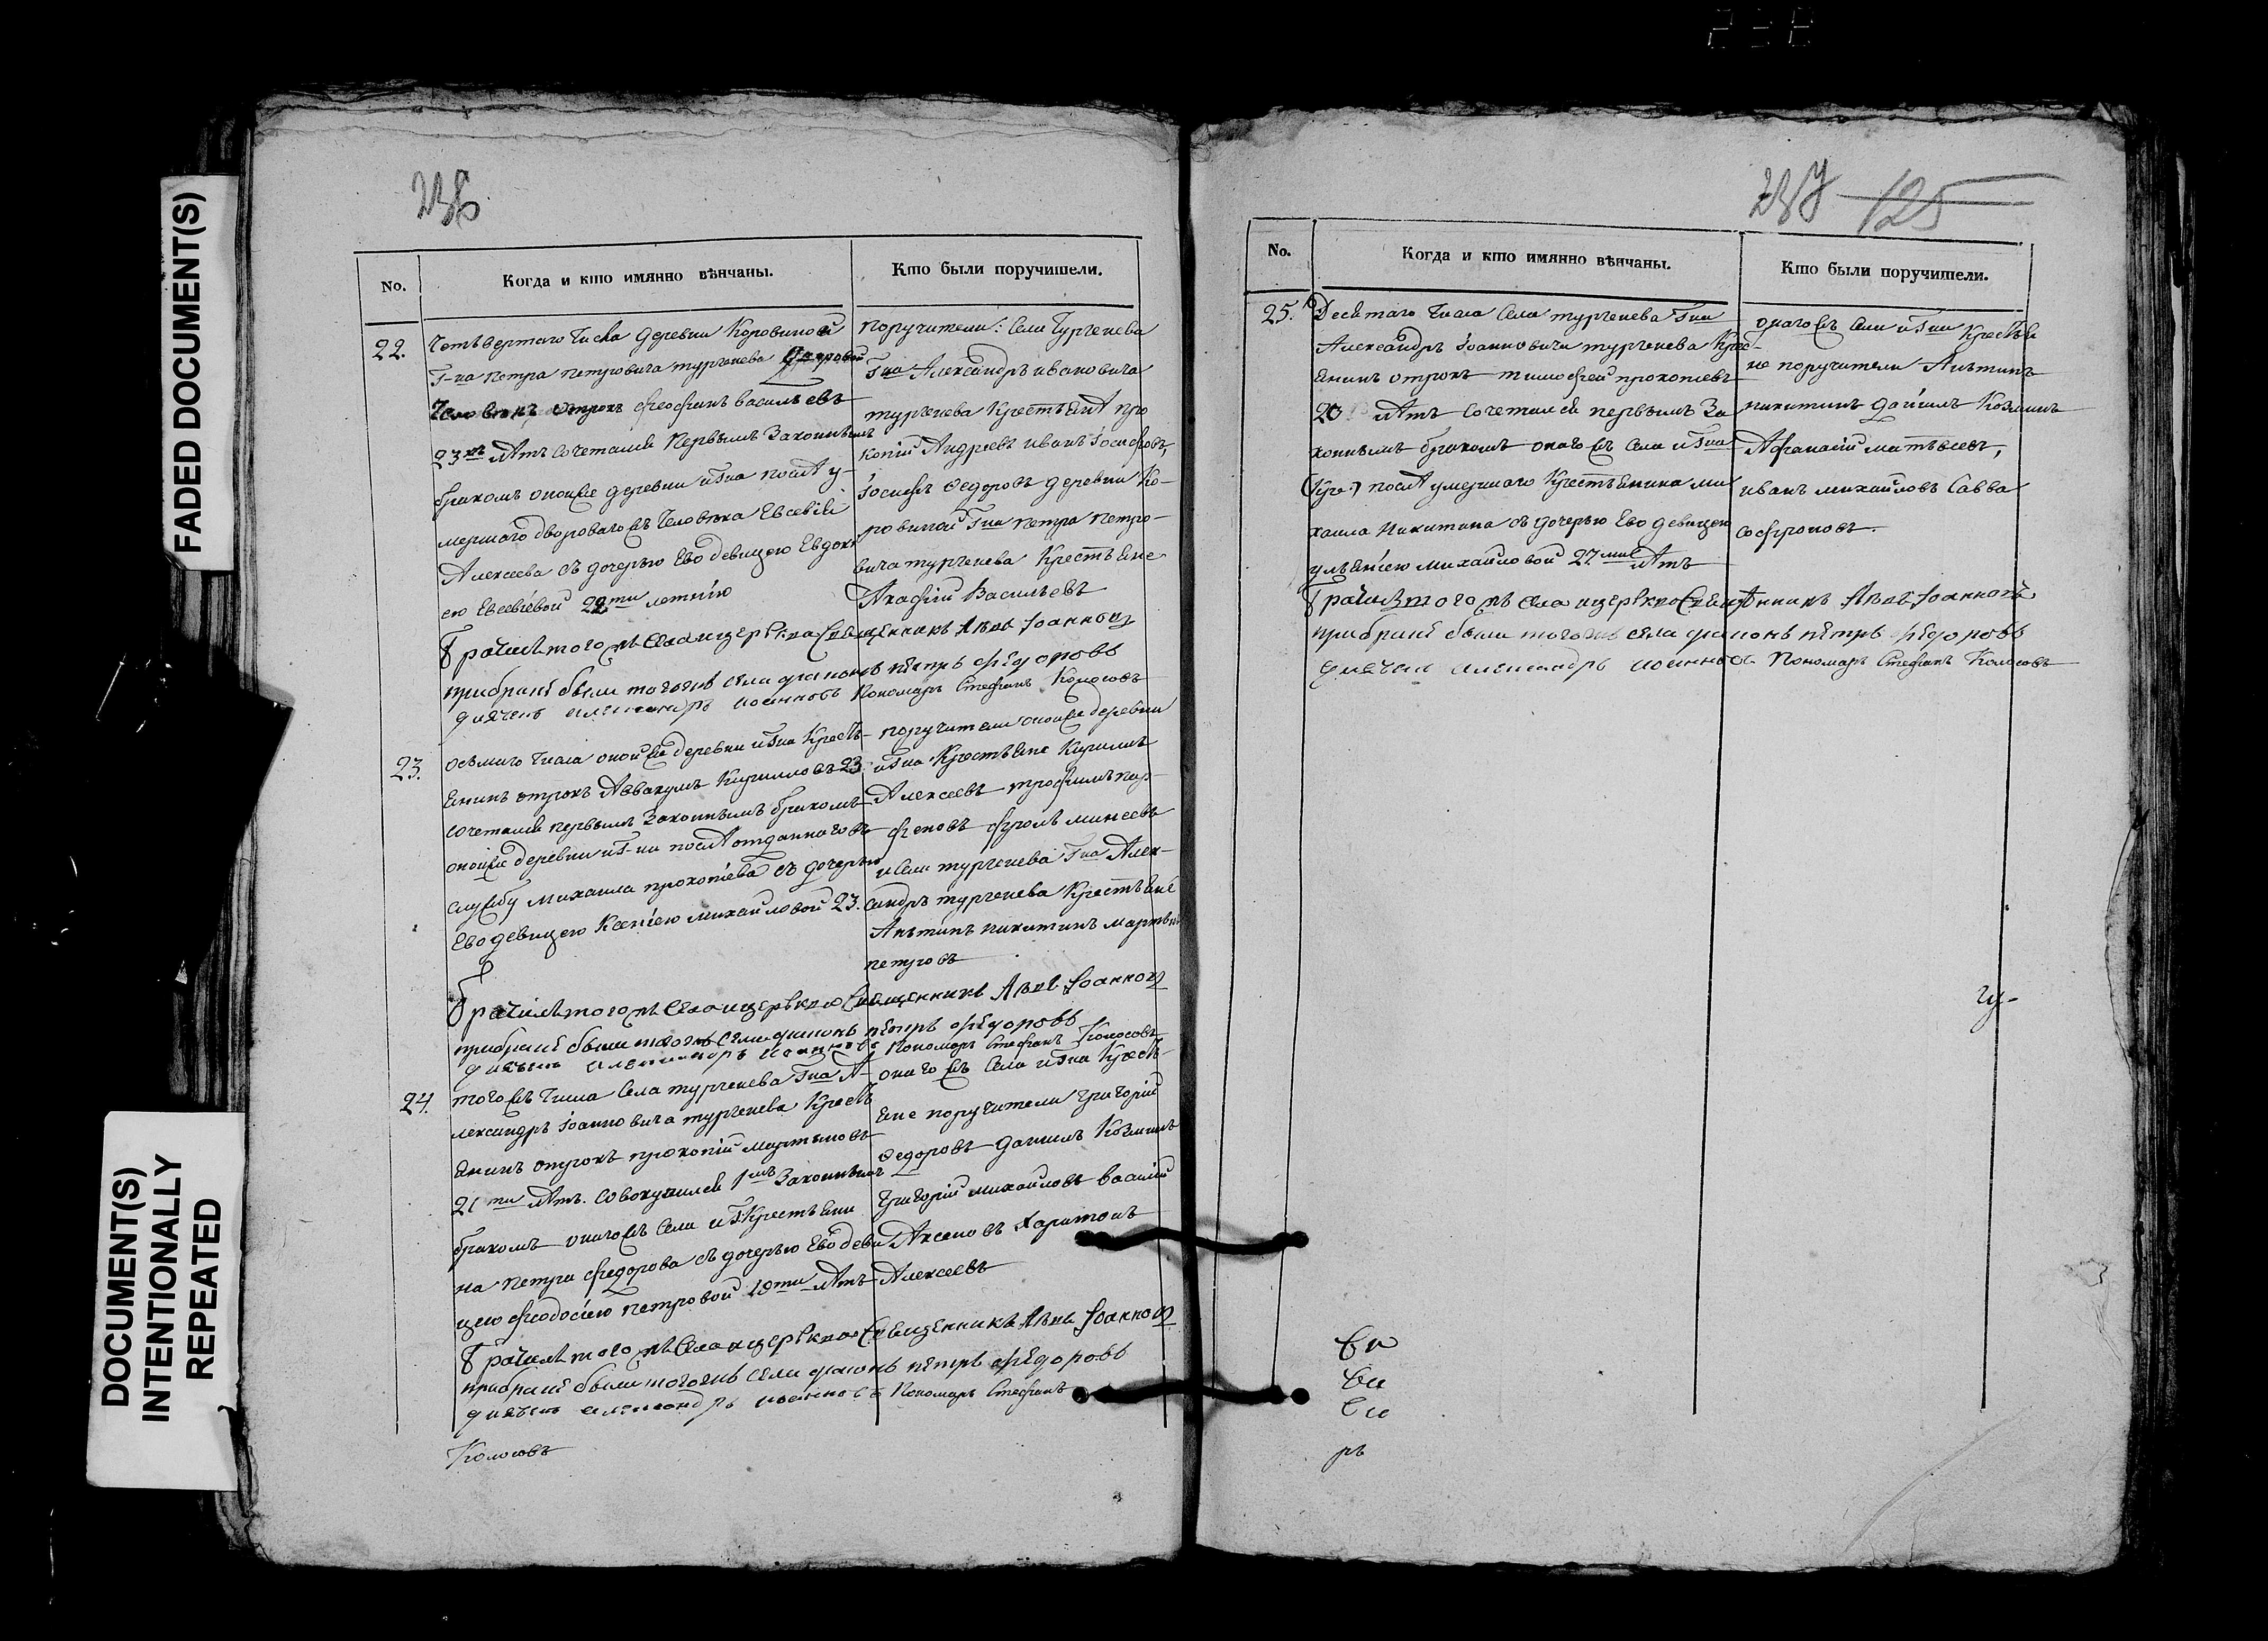 FADED DOCUMENT(S)
DOCUMENT(S)
INTENTIONALLY
REPEATED
236
No.
Когда и кто имянно вѣнчаны.
Кто были поручители.
22.
Четвертаго Числа деревни Коровиной
Г-на петра петровича тургенева дворовой
Человекъ отрокъ феофанъ васильевъ
23хъ лѣтъ сочетался Первымъ Законнымъ
бракомъ оной же деревни и Гна послѣ у-
мершаго двороваго жъ Человека Евсевія
Алексеева съ дочерью Ево девицею Евдокі
ею Евсевіевой 22ти летнію
поручители: Села Тургенева
Гна Александръ ивановича
тургенева Крестьянѣ про
копій Андреевъ иванъ іосифовъ,
іосифъ Ѳедоровъ деревни Ко-
ровиной Гна петра петро-
вича тургенева Крестьяне
Акафій Васильевъ
Брачилъ тогожъ села и церкви Священникъ Левъ Іоанновъ
при браке были тогожъ села диаконъ петръ федоровъ
диячекъ александръ иоанновъ Пономарь Стефанъ Колосовъ
23.
осьмаго Числа оной же деревни и Гна Кресть-
янинъ отрокъ Аввакумъ Кирилловъ 23
сочетался первымъ Законнымъ бракомъ
оной же деревни и Г-на послѣ отданнаго въ
службу михаила прокопіева съ дочерью
Ево девицею Ксеніею михайловой 23.
поручители оной же деревни
и Гна Крестьяне Кирилъ
Алексеевъ трофимъ пар-
феновъ фролъ минеевъ
и села тургенева Гна Алек-
сандръ тургенева Крестьяне
Антипъ никитинъ мартынъ
петровъ
Брачилъ тогожъ села и церкви Священникъ Левъ Іоанновъ
при браке были тогожъ села диаконъ петръ федоровъ
диячекъ александръ иоанновъ Пономарь Стефанъ Колосовъ
24.
тогожъ Числа Села тургенева Гна А-
лександръ іоанновича тургенева Кресть
янинъ отрокъ прокопій мартыновъ
21ти лѣтъ. совокупился 1мъ Законнымъ
бракомъ онагожъ Села и Г: Крестьяни
на Петра федорова съ дочерью Ево деви
цею феодосіею петровой 19ти лѣтъ
онагожъ Села и Гна Кресть-
яне поручители григорій
Ѳедоровъ данилъ Козминъ
григорій михайловъ василій
Аксеновъ Харитонъ
Алексеевъ
Брачилъ тогожъ села и церкви Священникъ Левъ Іоанновъ
при браке были тогожъ села диаконъ петръ федоровъ
диячекъ александръ иоанновъ Пономарь Стефанъ
Колосовъ
237 125
No.
Когда и кто имянно вѣнчаны.
Кто были поручители.
25.
Десятаго Числа Села тургенева Гна
Александръ іоанновича тургенева Крес-
янинъ отрокъ тимофей прокопіевъ
20 лѣтъ сочетался первымъ За
коннымъ бракомъ онагожъ села и Гна
(Кре) послѣ умершаго Крестьянина ми
хаила Никитина съ дочерью Ево девицею
ульяніею михайловой 27ми лѣтъ
онагожъ села и Гна Крестья
не поручители Антипъ
никитинъ даніилъ Козминъ
Афанасій матвѣевъ,
иванъ михайловъ Савва
софроновъ
Брачилъ тогожъ села и церкви Священникъ Левъ Іоанновъ
при браке были тогожъ села диаконъ петръ федоровъ
диячекъ александръ иоанновъ Пономарь Стефанъ Колосовъ
рь